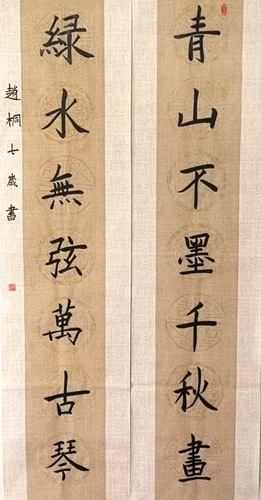 青山不墨千秋畫
綠水無弦萬古琴
趙桐七歲書